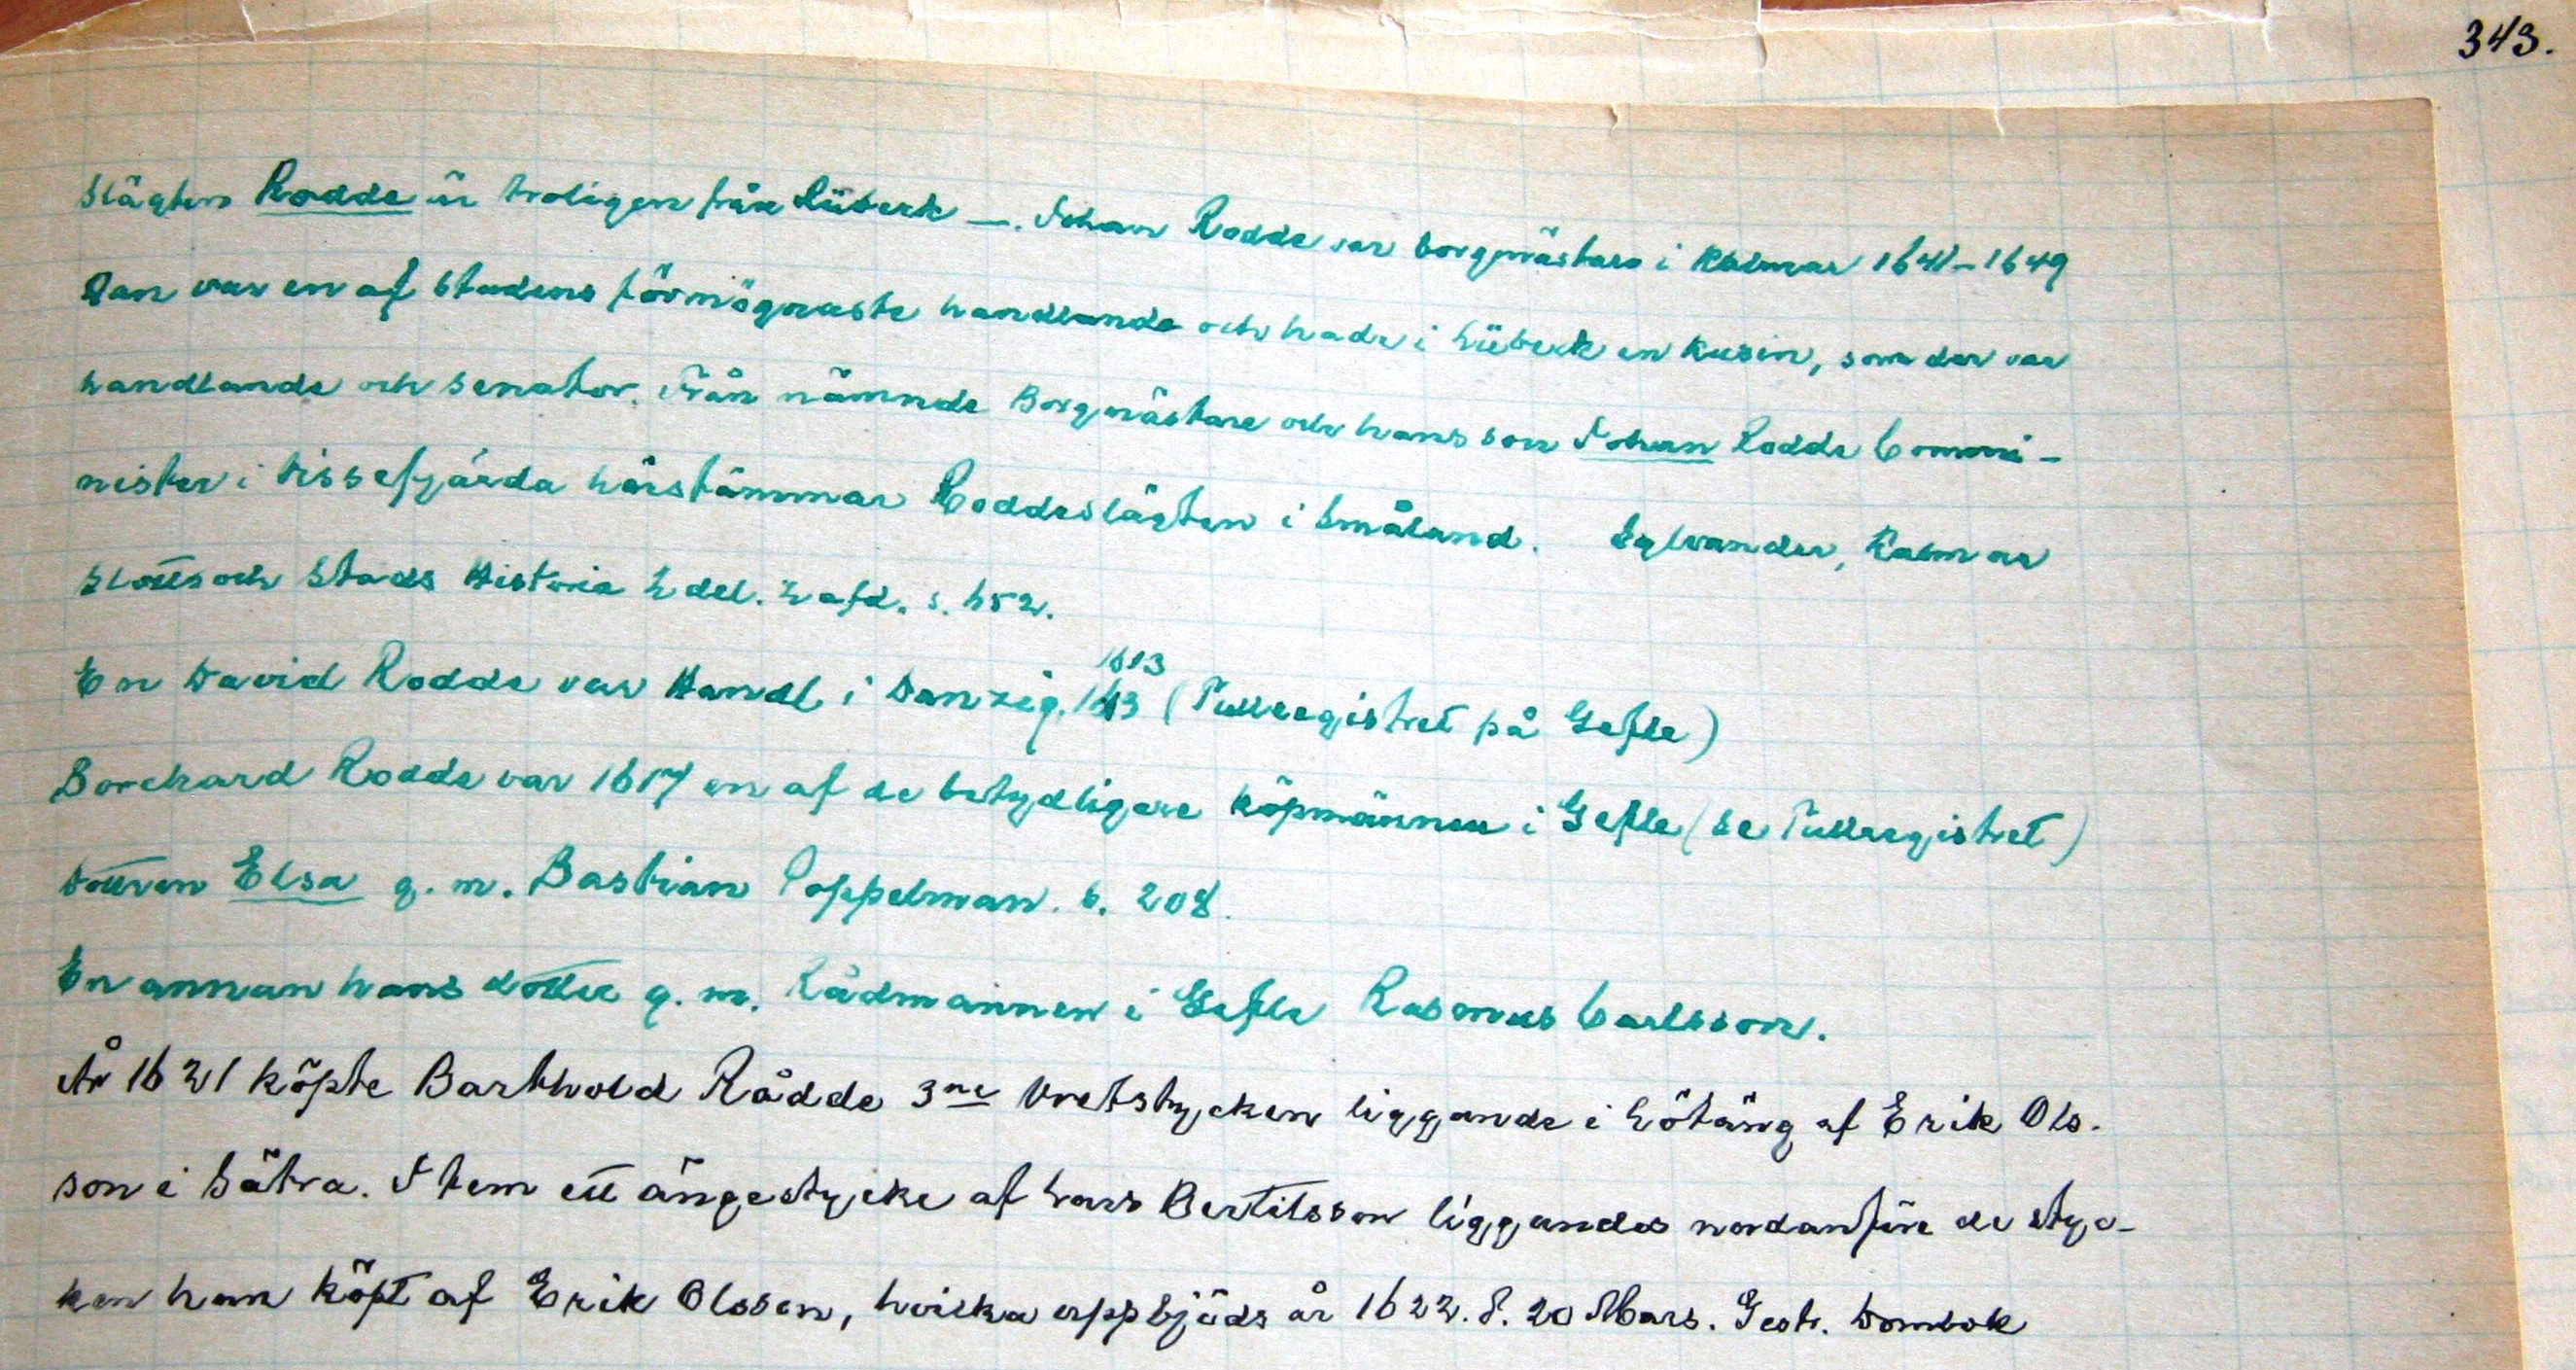 343.
Slägten Rodde är troligen från Lübeck —. Johan Rodde var borgmästare i Kalmar 1641-1649
Han var en af stadens förmögnaste handlande och hade i Lübeck en kusin, som der var
handlande och senator. Från nämnde Borgmästare och hans son Johan Rodde Commi-
nister i Vissefjärda härstammar Roddeslägten i Småland. Sylvander, Kalmar
Slotts och Stads Historia 2 del. 2 afd. s. 652.
En David Rodde var Handl. i Danzig. 1613 (Tullregistret på Gefle)
1613
Borchard Rodde var 1617 en af de betydligare köpmännen i Gefle (se Tullregistret)
Dottren Elsa g. m. Bastian Poppelman. s. 208.
En annan hans dotter g. m. Rådmannen i Gefle Rasmus Carlsson.
År 1621 köpte Barthold Rådde 3ne Vretstycken liggande i Lötäng af Erik Ols-
son i Sätra. Item ett ängestycke af Lars Bertilsson liggandes nordanföre de styc-
ken han köpt af Erik Olsson, hvilka uppbjöds år 1622. d. 20 Mars. Gestr. Dombok